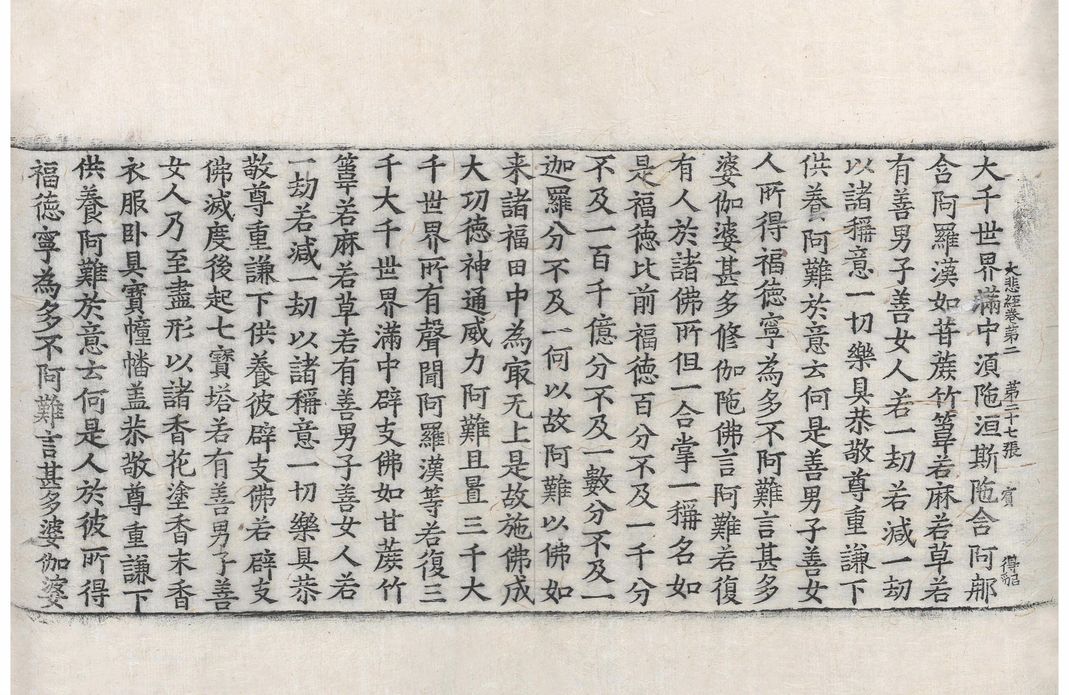 大悲經卷第二 第二十七張 賓 得紹
大千世界滿中須陁洹斯陁含阿那
含阿羅漢如苷蔗竹䓫若麻若草若
有善男子善女人若一劫若減一劫
以諸稱意一切樂具恭敬尊重謙下
供養阿難於意云何是善男子善女
人所得福德寧為多不阿難言甚多
婆伽婆甚多修伽陁佛言阿難若復
有人於諸佛所但一合掌一稱名如
是福德比前福德百分不及一千分
不及一百千億分不及一數分不及一
迦羅分不及一何以故阿難以佛如
来諸福田中為㝡无上是故施佛成
大功德神通威力阿難且置三千大
千世界所有聲聞阿羅漢等若復三
千大千世界滿中辟支佛如甘蔗竹
䓫若麻若草若有善男子善女人若
一劫若減一劫以諸稱意一切樂具恭
敬尊重謙下供養彼辟支佛若辟支
佛滅度後起七寶塔若有善男子善
女人乃至盡形以諸香花塗香末香
衣服卧具寶幢幡盖恭敬尊重謙下
供養阿難於意云何是人於彼所得
福德寧為多不阿難言甚多婆伽婆